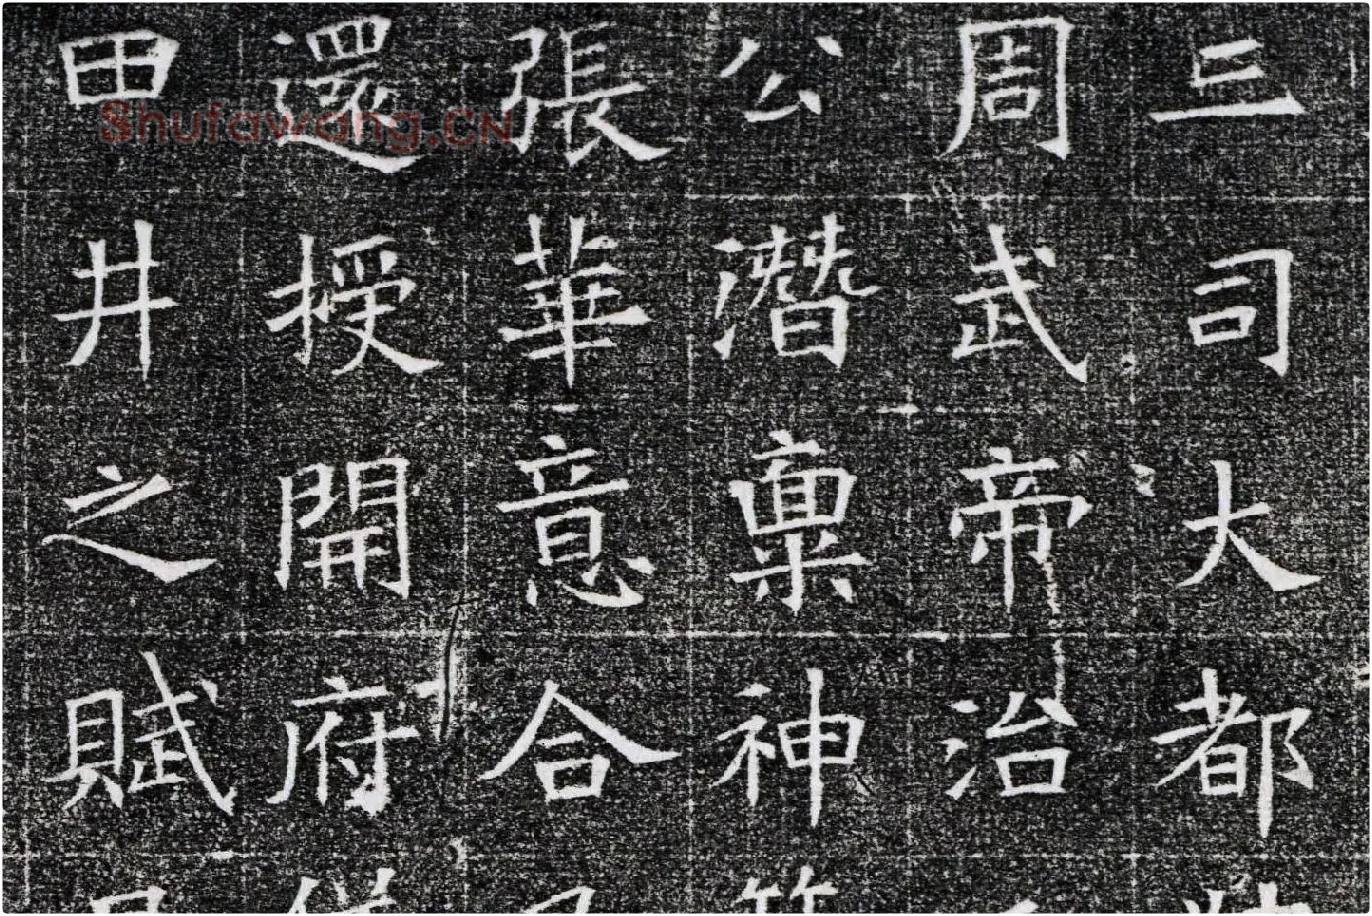 三司大都
周武帝治
公潛稟神
張華意合
還授開府
田井之賦
Shufawang.CN